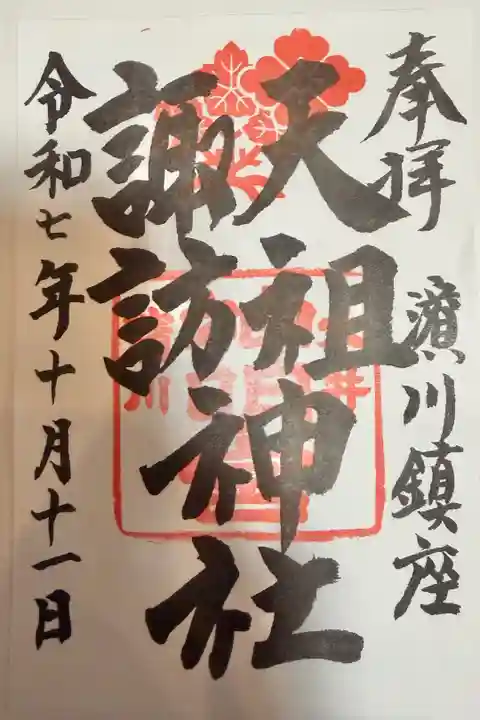 奉拝 濵川鎮座
天祖
諏訪
神社
令和七年十月十一日